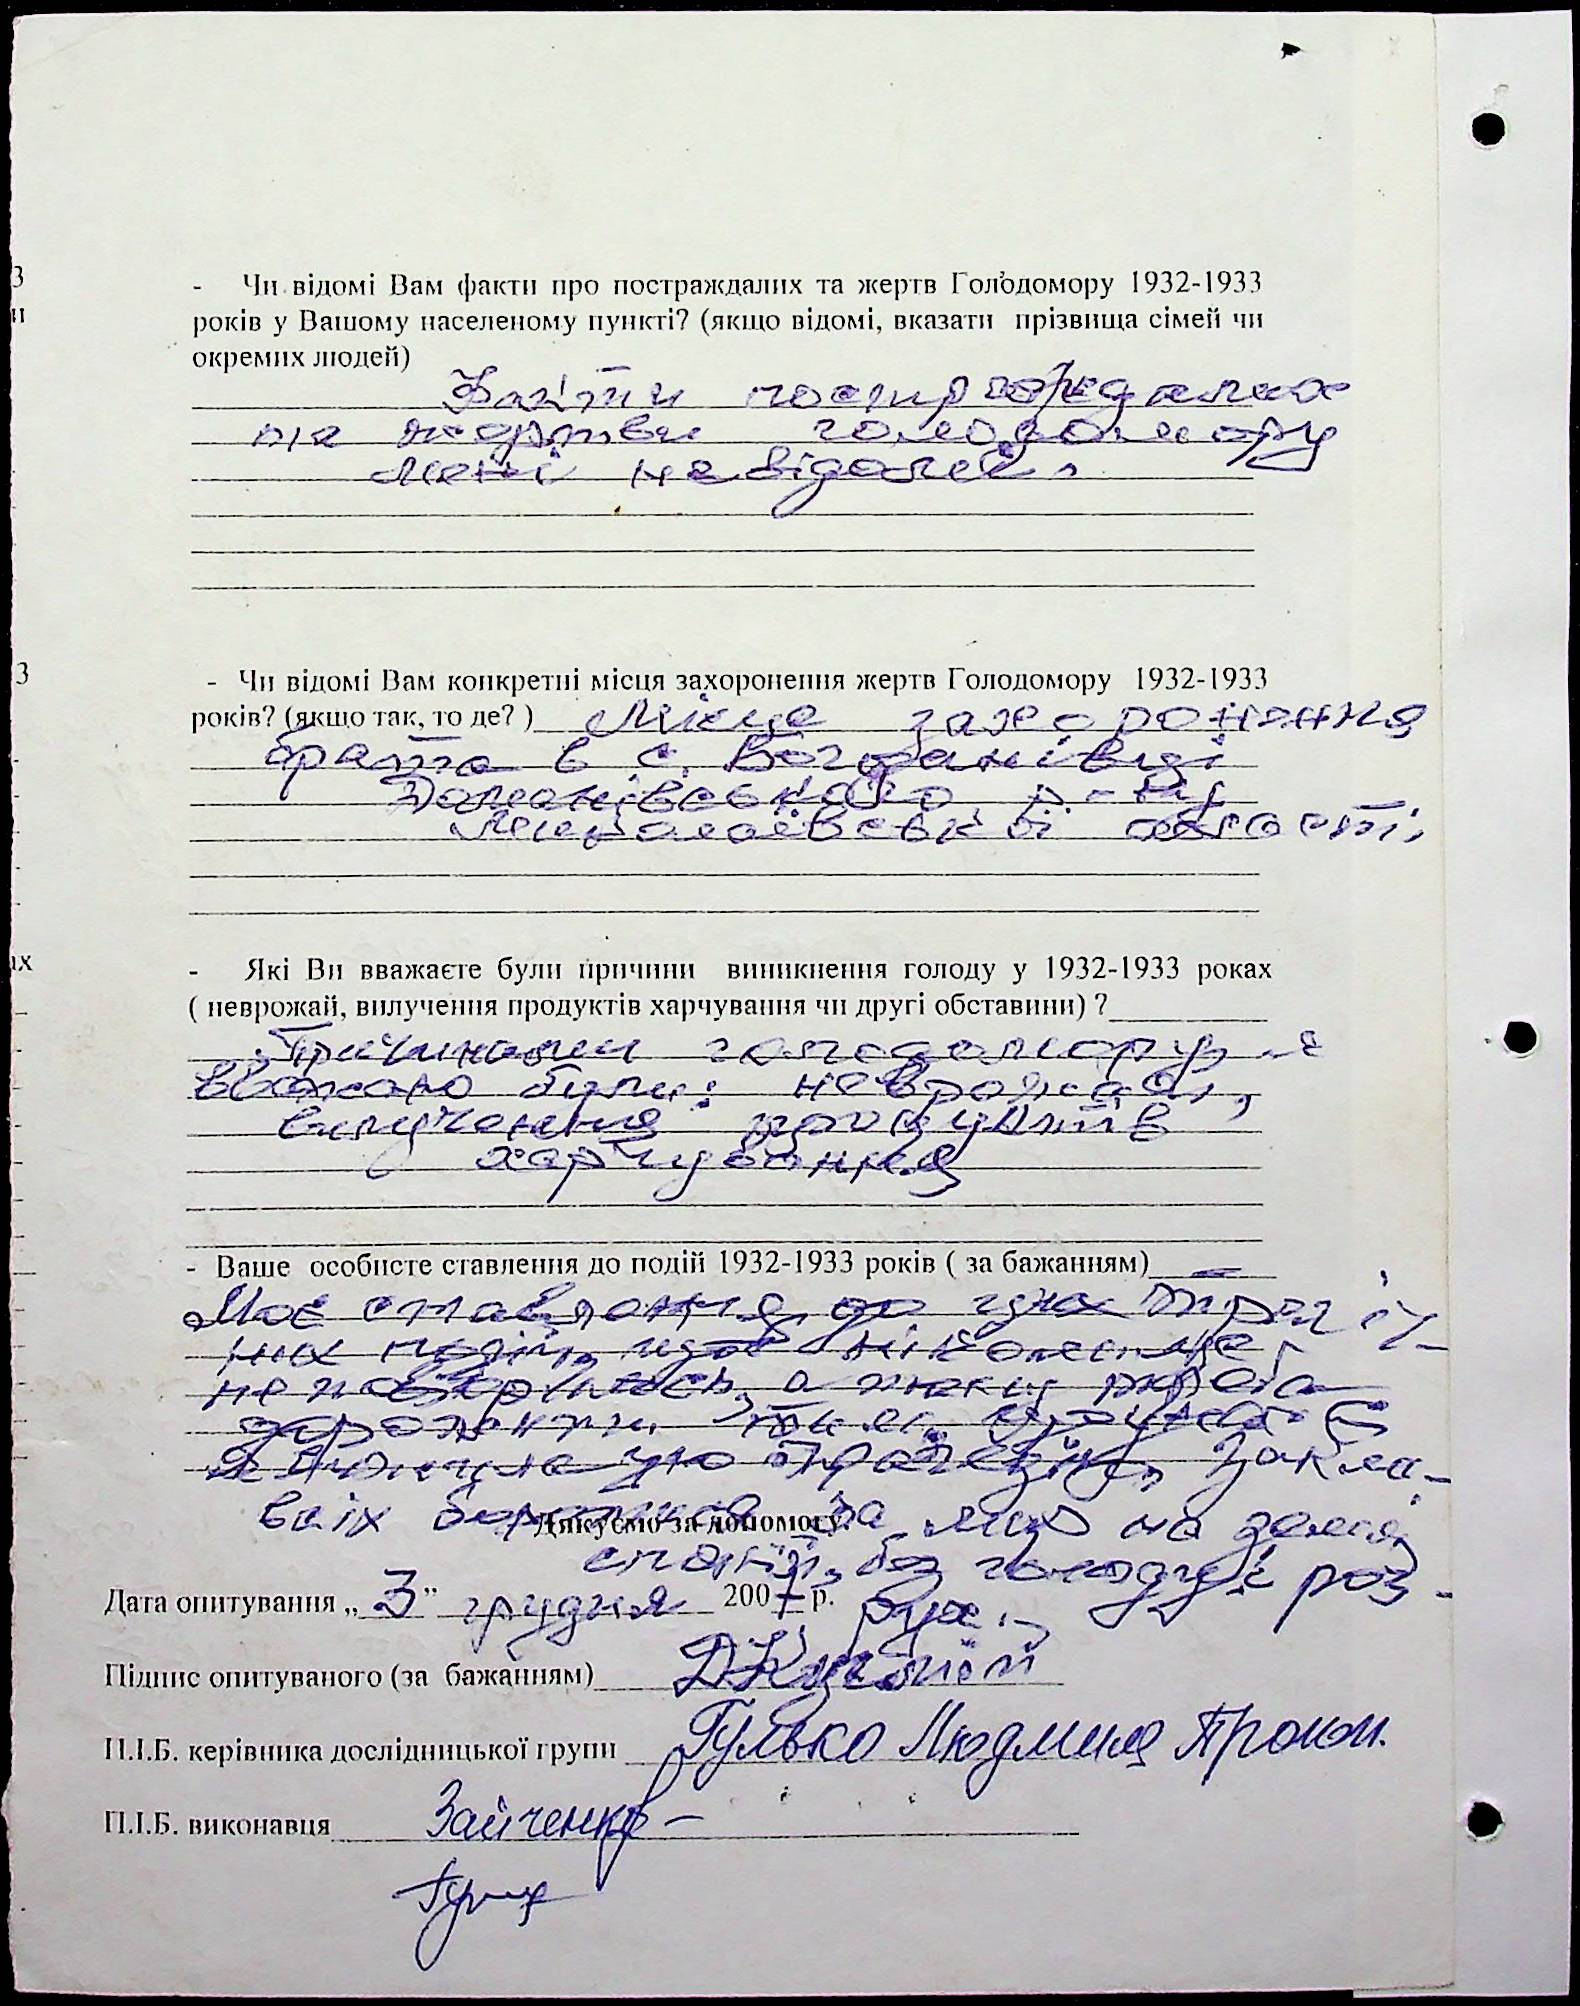 - Чи відомі Вам факти про постраждалих та жертв Голодомору 1932-1933
років у Вашому населеному пункті? (якщо відомі, вказати прізвища сімей чи
окремих людей)
Факти постраждалих
та жертви голодомору
мені не відомі.
- Чи відомі Вам конкретні місця захоронення жертв Голодомору 1932-1933
років? (якщо так, то де?) Місце захоронення
брата в с. Богданівці
Доманівського р-ну
Миколаївської області.
- Які Ви вважаєте були причини виникнення голоду у 1932-1933 роках
( неврожай, вилучення продуктів харчування чи другі обставини) ?
Причинами голодомору я
вважаю були: неврожай,
вилучення продуктів
харчування
- Ваше особисте ставлення до подій 1932-1933 років ( за бажанням)
Моє ставлення до цих трагіч-
них подій, щоб ніколи це
не повторилось, а
я цю трагедію, закли-
всіх за мир на землі,
Дякуємо за допомогу.
спокій, без голоду і роз-
рух.
Дата опитування „ 3 " грудня 2007 р.
Підпис опитуваного (за бажанням)
П.І.Б. керівника дослідницької групи Гулько Людмила Прокоп.
П.І.Б. виконавця Зайченко